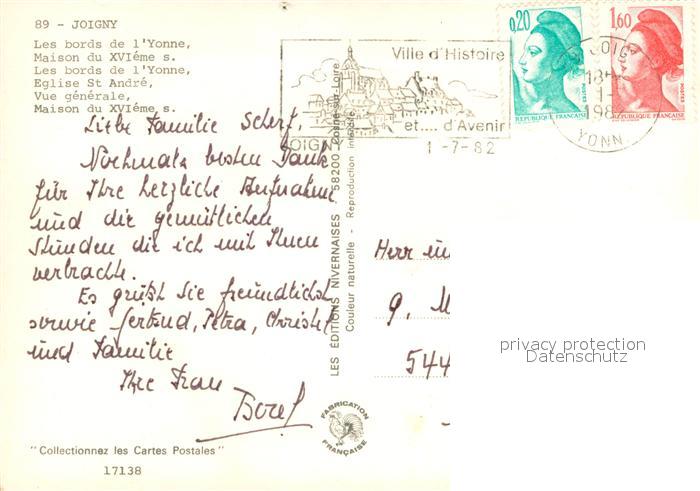 89 - JOIGNY
Les bords de l'Yonne,
Maison du XVIéme s.
Les bords de l'Yonne,
Eglise St André,
Vue générale,
Maison du XVIéme s.
Liebe Familie Scherf,
Nochmals besten Dank
für Ihre herzliche Aufnahme
und die gemütlichen
Stunden die ich mit Ihnen
verbrachte.
Es grüßt Sie freundlichst
sowie Gertrud, Petra, Christel
und Familie
Ihre Frau
"Collectionnez les Cartes Postales"
17138
LES ÉDITIONS NIVERNAISES - 58200 Cosne-sur-Loire
Couleur naturelle - Reproduction interdite
FABRICATION
FRANÇAISE
Ville d'Histoire
et.... d'Avenir
JOIGNY
1-7-82
0,20
POSTES
REPUBLIQUE FRANÇAISE
1,60
POSTES
REPUBLIQUE FRANÇAISE
JOIGNY
18H
1-
198
YONN
Herr
9. M
544
privacy protection
Datenschutz